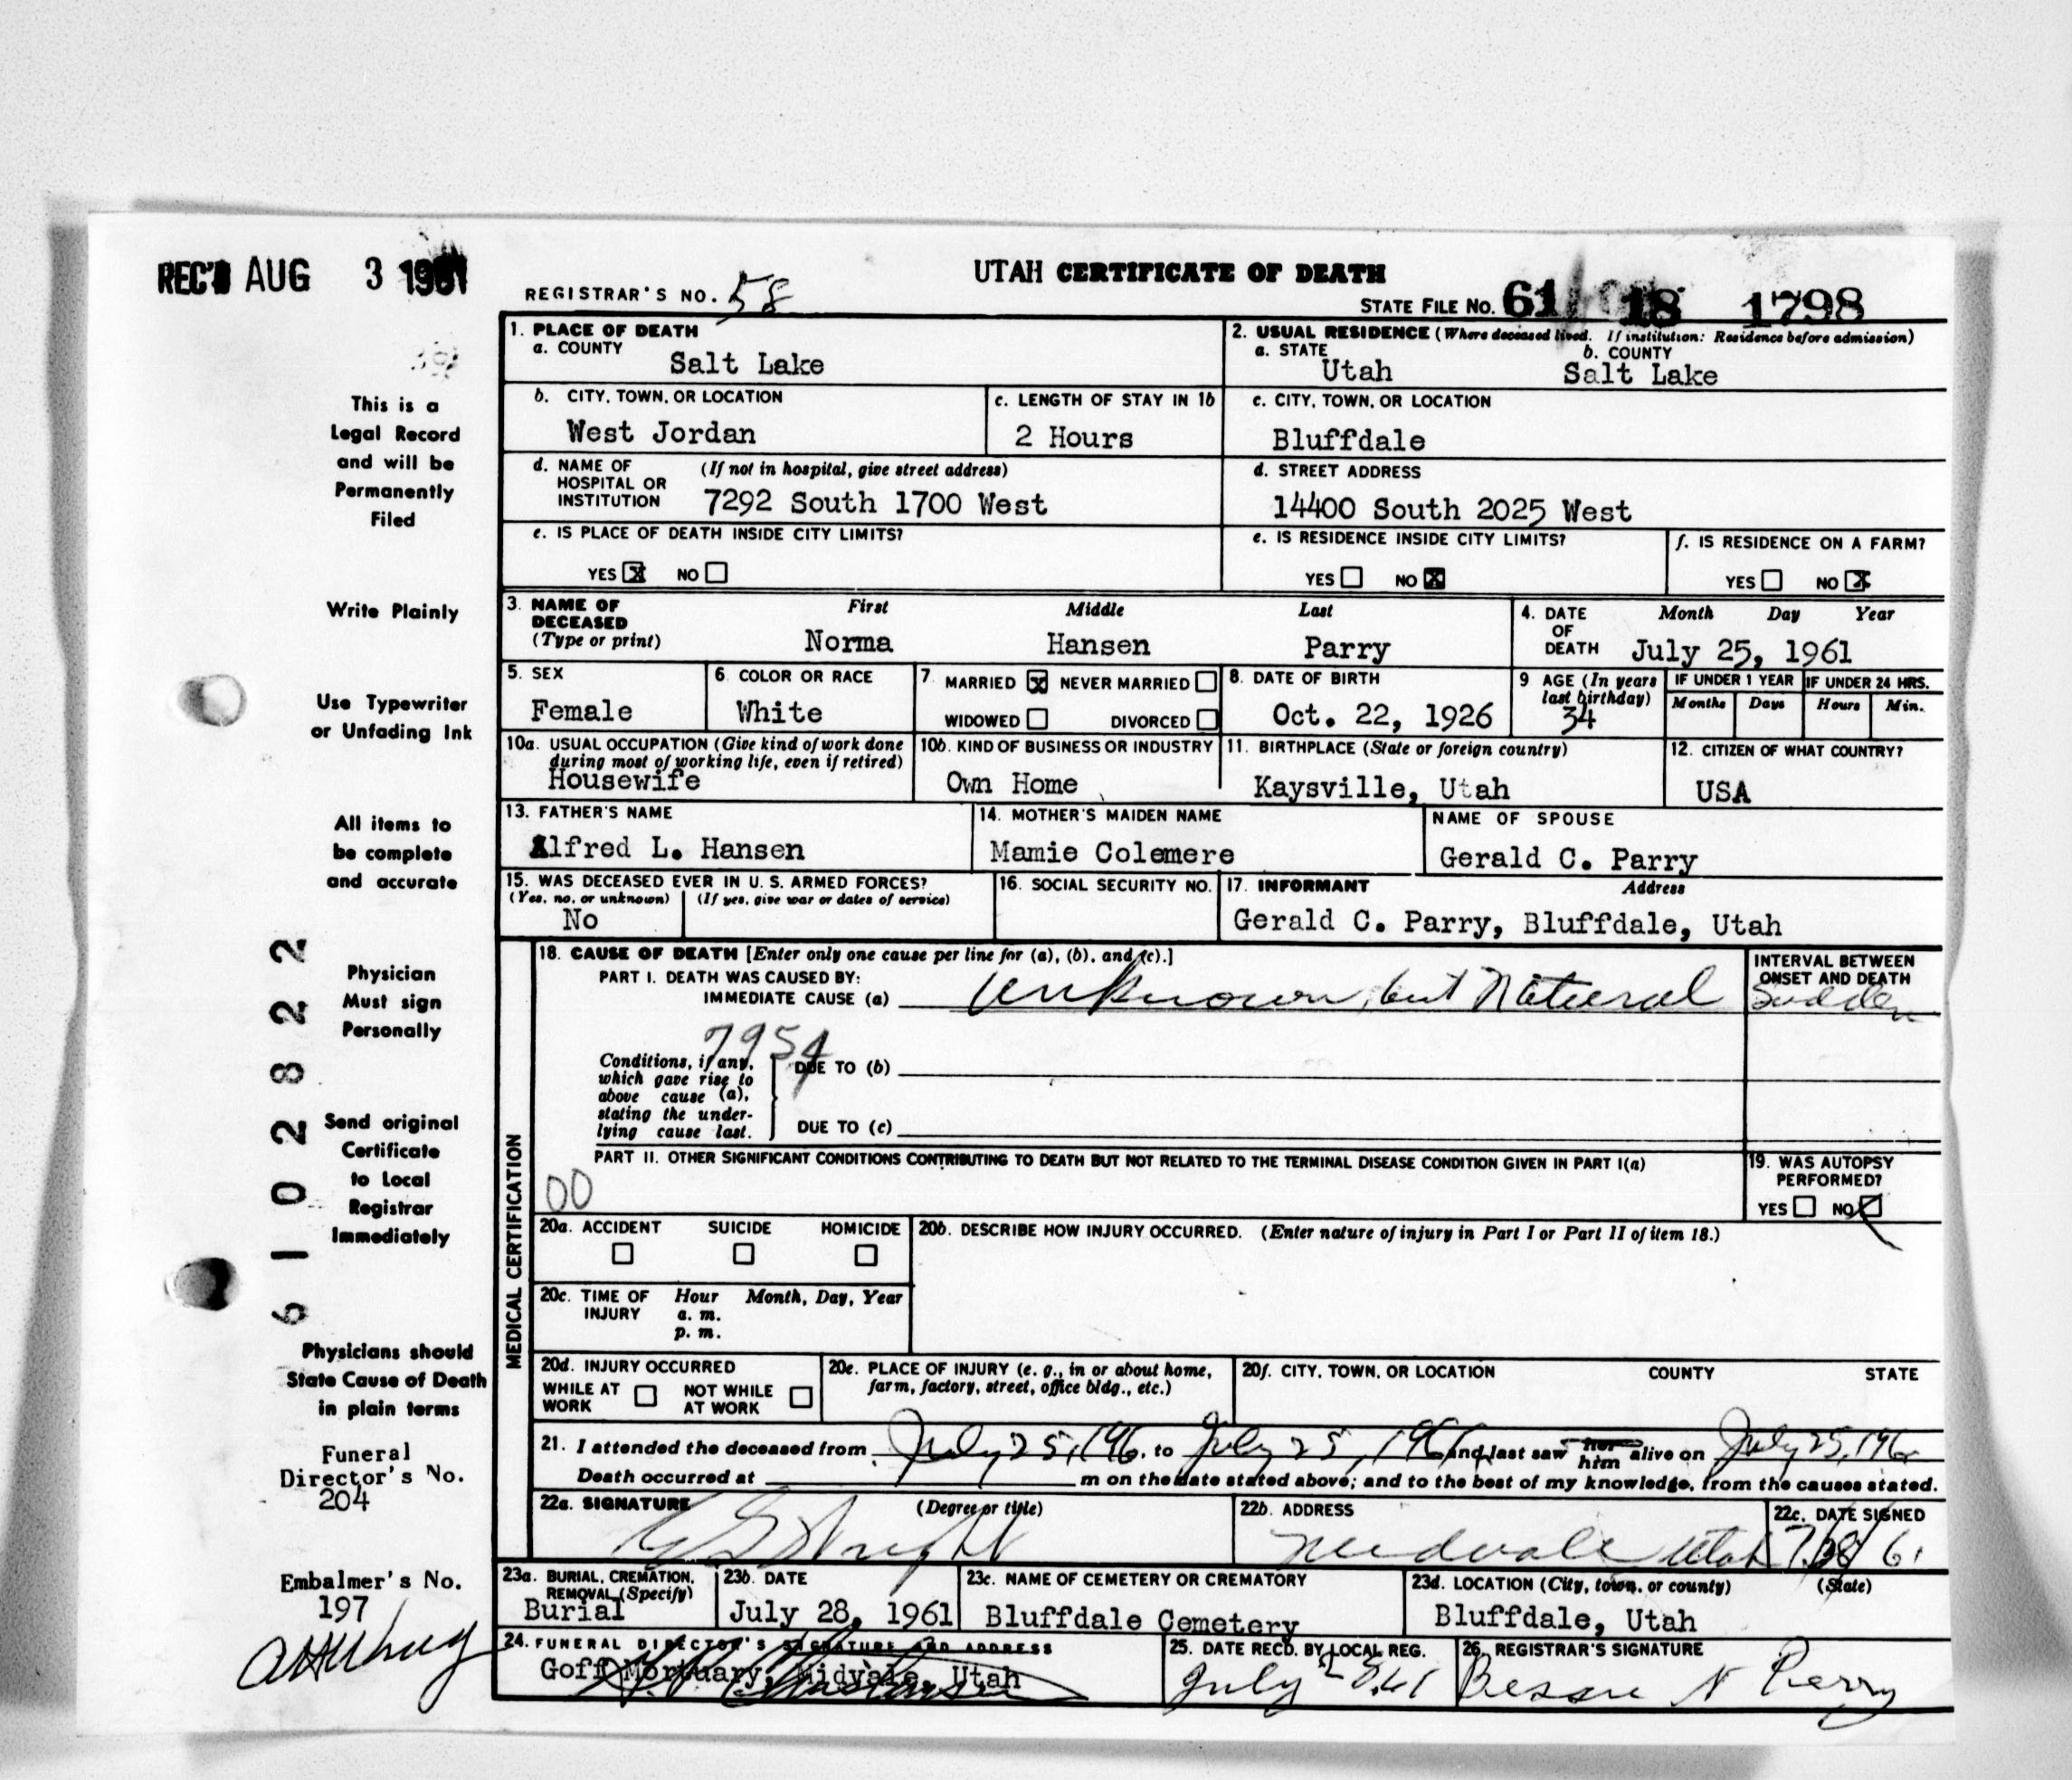 REC'D AUG 3 1961
UTAH CERTIFICATE OF DEATH
REGISTRAR'S NO. 58
STATE FILE No. 61 18 1798
1. PLACE OF DEATH
a. COUNTY
Salt Lake
2. USUAL RESIDENCE (Where deceased lived. If institution: Residence before admission)
a. STATE b. COUNTY
Utah Salt Lake
b. CITY, TOWN, OR LOCATION
West Jordan
c. LENGTH OF STAY IN 1b
2 Hours
c. CITY, TOWN, OR LOCATION
Bluffdale
d. NAME OF HOSPITAL OR INSTITUTION (If not in hospital, give street address)
7292 South 1700 West
d. STREET ADDRESS
14400 South 2025 West
e. IS PLACE OF DEATH INSIDE CITY LIMITS?
YES X NO
e. IS RESIDENCE INSIDE CITY LIMITS?
YES NO X
f. IS RESIDENCE ON A FARM?
YES NO X
3. NAME OF DECEASED (Type or print)
First Middle Last
Norma Hansen Parry
4. DATE OF DEATH Month Day Year
July 25, 1961
5. SEX
Female
6 COLOR OR RACE
White
7 MARRIED X NEVER MARRIED
WIDOWED DIVORCED
8. DATE OF BIRTH
Oct. 22, 1926
9 AGE (In years last birthday)
34
IF UNDER 1 YEAR
Months Days
IF UNDER 24 HRS.
Hours Min.
10a. USUAL OCCUPATION (Give kind of work done during most of working life, even if retired)
Housewife
10b. KIND OF BUSINESS OR INDUSTRY
Own Home
11. BIRTHPLACE (State or foreign country)
Kaysville, Utah
12. CITIZEN OF WHAT COUNTRY?
USA
13. FATHER'S NAME
Alfred L. Hansen
14. MOTHER'S MAIDEN NAME
Mamie Colemere
NAME OF SPOUSE
Gerald C. Parry
15. WAS DECEASED EVER IN U. S. ARMED FORCES?
(Yes, no, or unknown) (If yes, give war or dates of service)
No
16. SOCIAL SECURITY NO.
17. INFORMANT Address
Gerald C. Parry, Bluffdale, Utah
MEDICAL CERTIFICATION
18. CAUSE OF DEATH [Enter only one cause per line for (a), (b), and (c).]
PART I. DEATH WAS CAUSED BY:
IMMEDIATE CAUSE (a) Unknown, but Natural
INTERVAL BETWEEN ONSET AND DEATH
Sudden
7954
Conditions, if any, which gave rise to above cause (a), stating the underlying cause last.
DUE TO (b)
DUE TO (c)
PART II. OTHER SIGNIFICANT CONDITIONS CONTRIBUTING TO DEATH BUT NOT RELATED TO THE TERMINAL DISEASE CONDITION GIVEN IN PART I(a)
00
19. WAS AUTOPSY PERFORMED?
YES NO
20a. ACCIDENT SUICIDE HOMICIDE
20b. DESCRIBE HOW INJURY OCCURRED. (Enter nature of injury in Part I or Part II of item 18.)
20c. TIME OF INJURY Hour Month, Day, Year
a. m.
p. m.
20d. INJURY OCCURRED
WHILE AT WORK NOT WHILE AT WORK
20e. PLACE OF INJURY (e. g., in or about home, farm, factory, street, office bldg., etc.)
20f. CITY, TOWN, OR LOCATION COUNTY STATE
21. I attended the deceased from July 25, 196 to July 25, 1961 and last saw her him alive on July 25, 196
Death occurred at m on the date stated above; and to the best of my knowledge, from the causes stated.
22a. SIGNATURE (Degree or title)
Wright
22b. ADDRESS
Midvale Utah
22c. DATE SIGNED
7/28/61
23a. BURIAL, CREMATION, REMOVAL (Specify)
Burial
23b. DATE
July 28, 1961
23c. NAME OF CEMETERY OR CREMATORY
Bluffdale Cemetery
23d. LOCATION (City, town, or county) (State)
Bluffdale, Utah
24. FUNERAL DIRECTOR'S SIGNATURE AND ADDRESS
Goff Mortuary, Midvale, Utah
25. DATE RECD. BY LOCAL REG.
July 28, 61
26. REGISTRAR'S SIGNATURE
Bessie N Perry
This is a
Legal Record
and will be
Permanently
Filed
Write Plainly
Use Typewriter
or Unfading Ink
All items to
be complete
and accurate
Physician
Must sign
Personally
Send original
Certificate
to Local
Registrar
Immediately
Physicians should
State Cause of Death
in plain terms
Funeral
Director's No.
204
Embalmer's No.
197
6102822